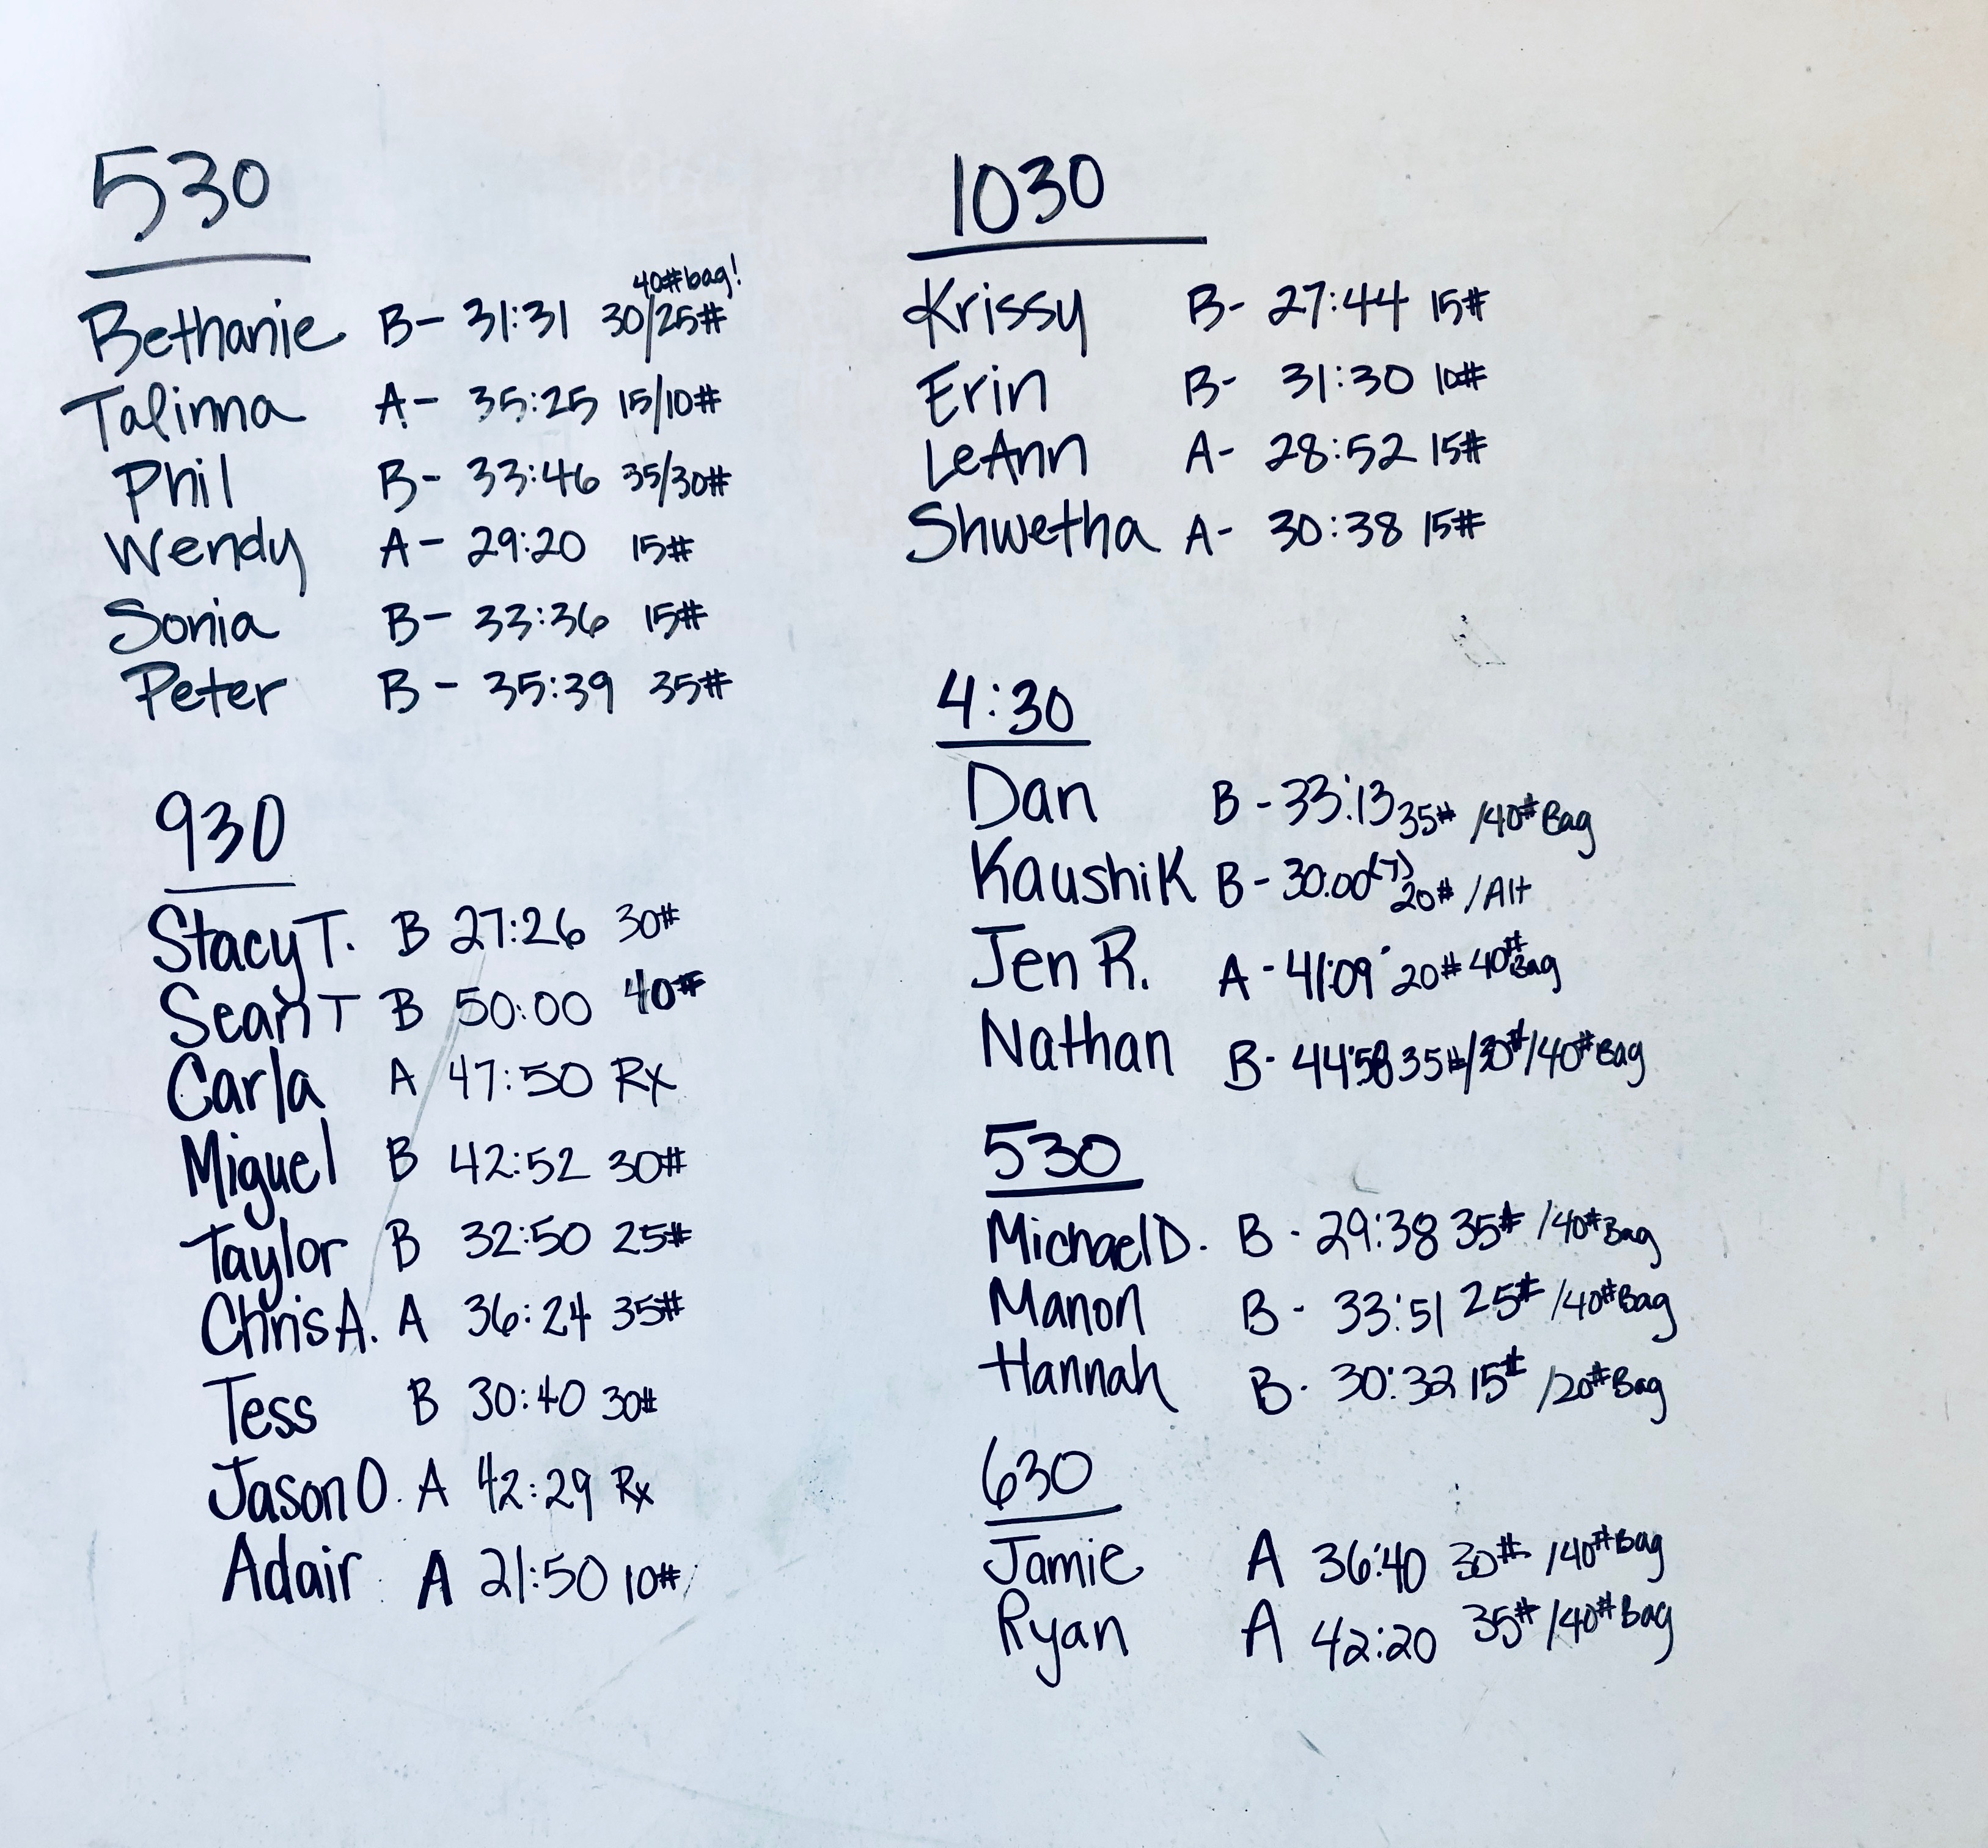 530
40# bag!
Bethanie B- 31:31 30/25#
Talinna A- 35:25 15/10#
Phil B- 33:46 35/30#
Wendy A- 29:20 15#
Sonia B- 33:36 15#
Peter B- 35:39 35#
930
Stacy T. B 27:26 30#
Sean T B 50:00 40#
Carla A 47:50 Rx
Miguel B 42:52 30#
Taylor B 32:50 25#
Chris A. A 36:24 35#
Tess B 30:40 30#
Jason O. A 42:29 Rx
Adair A 21:50 10#
1030
Krissy B- 27:44 15#
Erin B- 31:30 10#
LeAnn A- 28:52 15#
Shwetha A- 30:38 15#
4:30
Dan B - 33:13 35# /40# Bag
Kaushik B - 30:00 (7) 20# /Alt
Jen R. A - 41:09 20# 40# Bag
Nathan B- 44:58 35#/30#/40# Bag
530
Michael D. B - 29:38 35# /40# Bag
Manon B - 33:51 25# /40# Bag
Hannah B- 30:32 15# /20# Bag
630
Jamie A 36:40 30# /40# Bag
Ryan A 42:20 35# /40# Bag